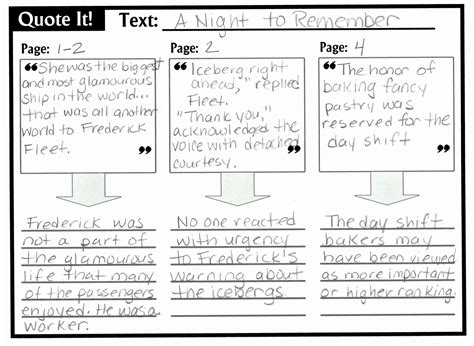 Quote It!
Text: A Night to Remember
Page: 1-2
“She was the biggest
and most glamourous
ship in the world...
that was all another
world to Frederick
Fleet.”
Page: 2
“Iceberg right
ahead," replied
Fleet.
"Thank you,"
acknowledged the
voice with detached
courtesy.”
Page: 4
“The honor of
baking fancy
pastry was
reserved for the
day shift”
Frederick was
not a part of
the glamourous
life that many
of the passengers
enjoyed. He was a
worker.
No one reacted
with urgency
to Frederick's
warning about
the icebergs
The day shift
bakers may
have been viewed
as more important
or higher ranking.